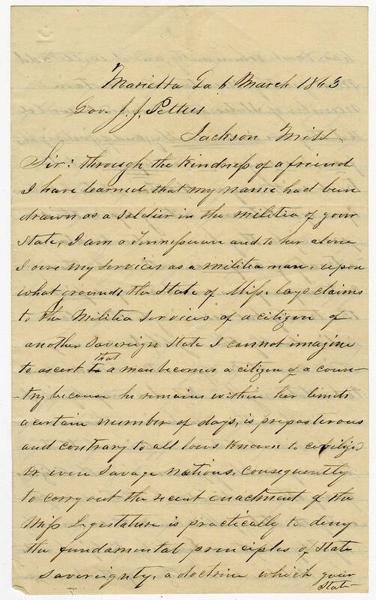 Marietta Ga 6 March 1863
Gov. J. J. Pettus
Jackson Miss.
Sir: through the kindness of a friend
I have learned that my name had been
drawn as a soldier in the militia of your
State, I am a Tennessean and to her alone
I owe my services as a militia man, upon
what grounds the State of Miss. lays claims
to the Militia services of a citizen of
another Sovereign State I cannot imagine
to assert that a man becomes a citizen of a coun-
-try because he remains within her limits
a certain number of days, is preposterous
and contrary to all laws known to civilized
or even Savage nations, Consequently
to carry out the recent enactment of the
Miss Legislature is practically to deny
the fundamental principles of State
sovereignty, a doctrine which your
State